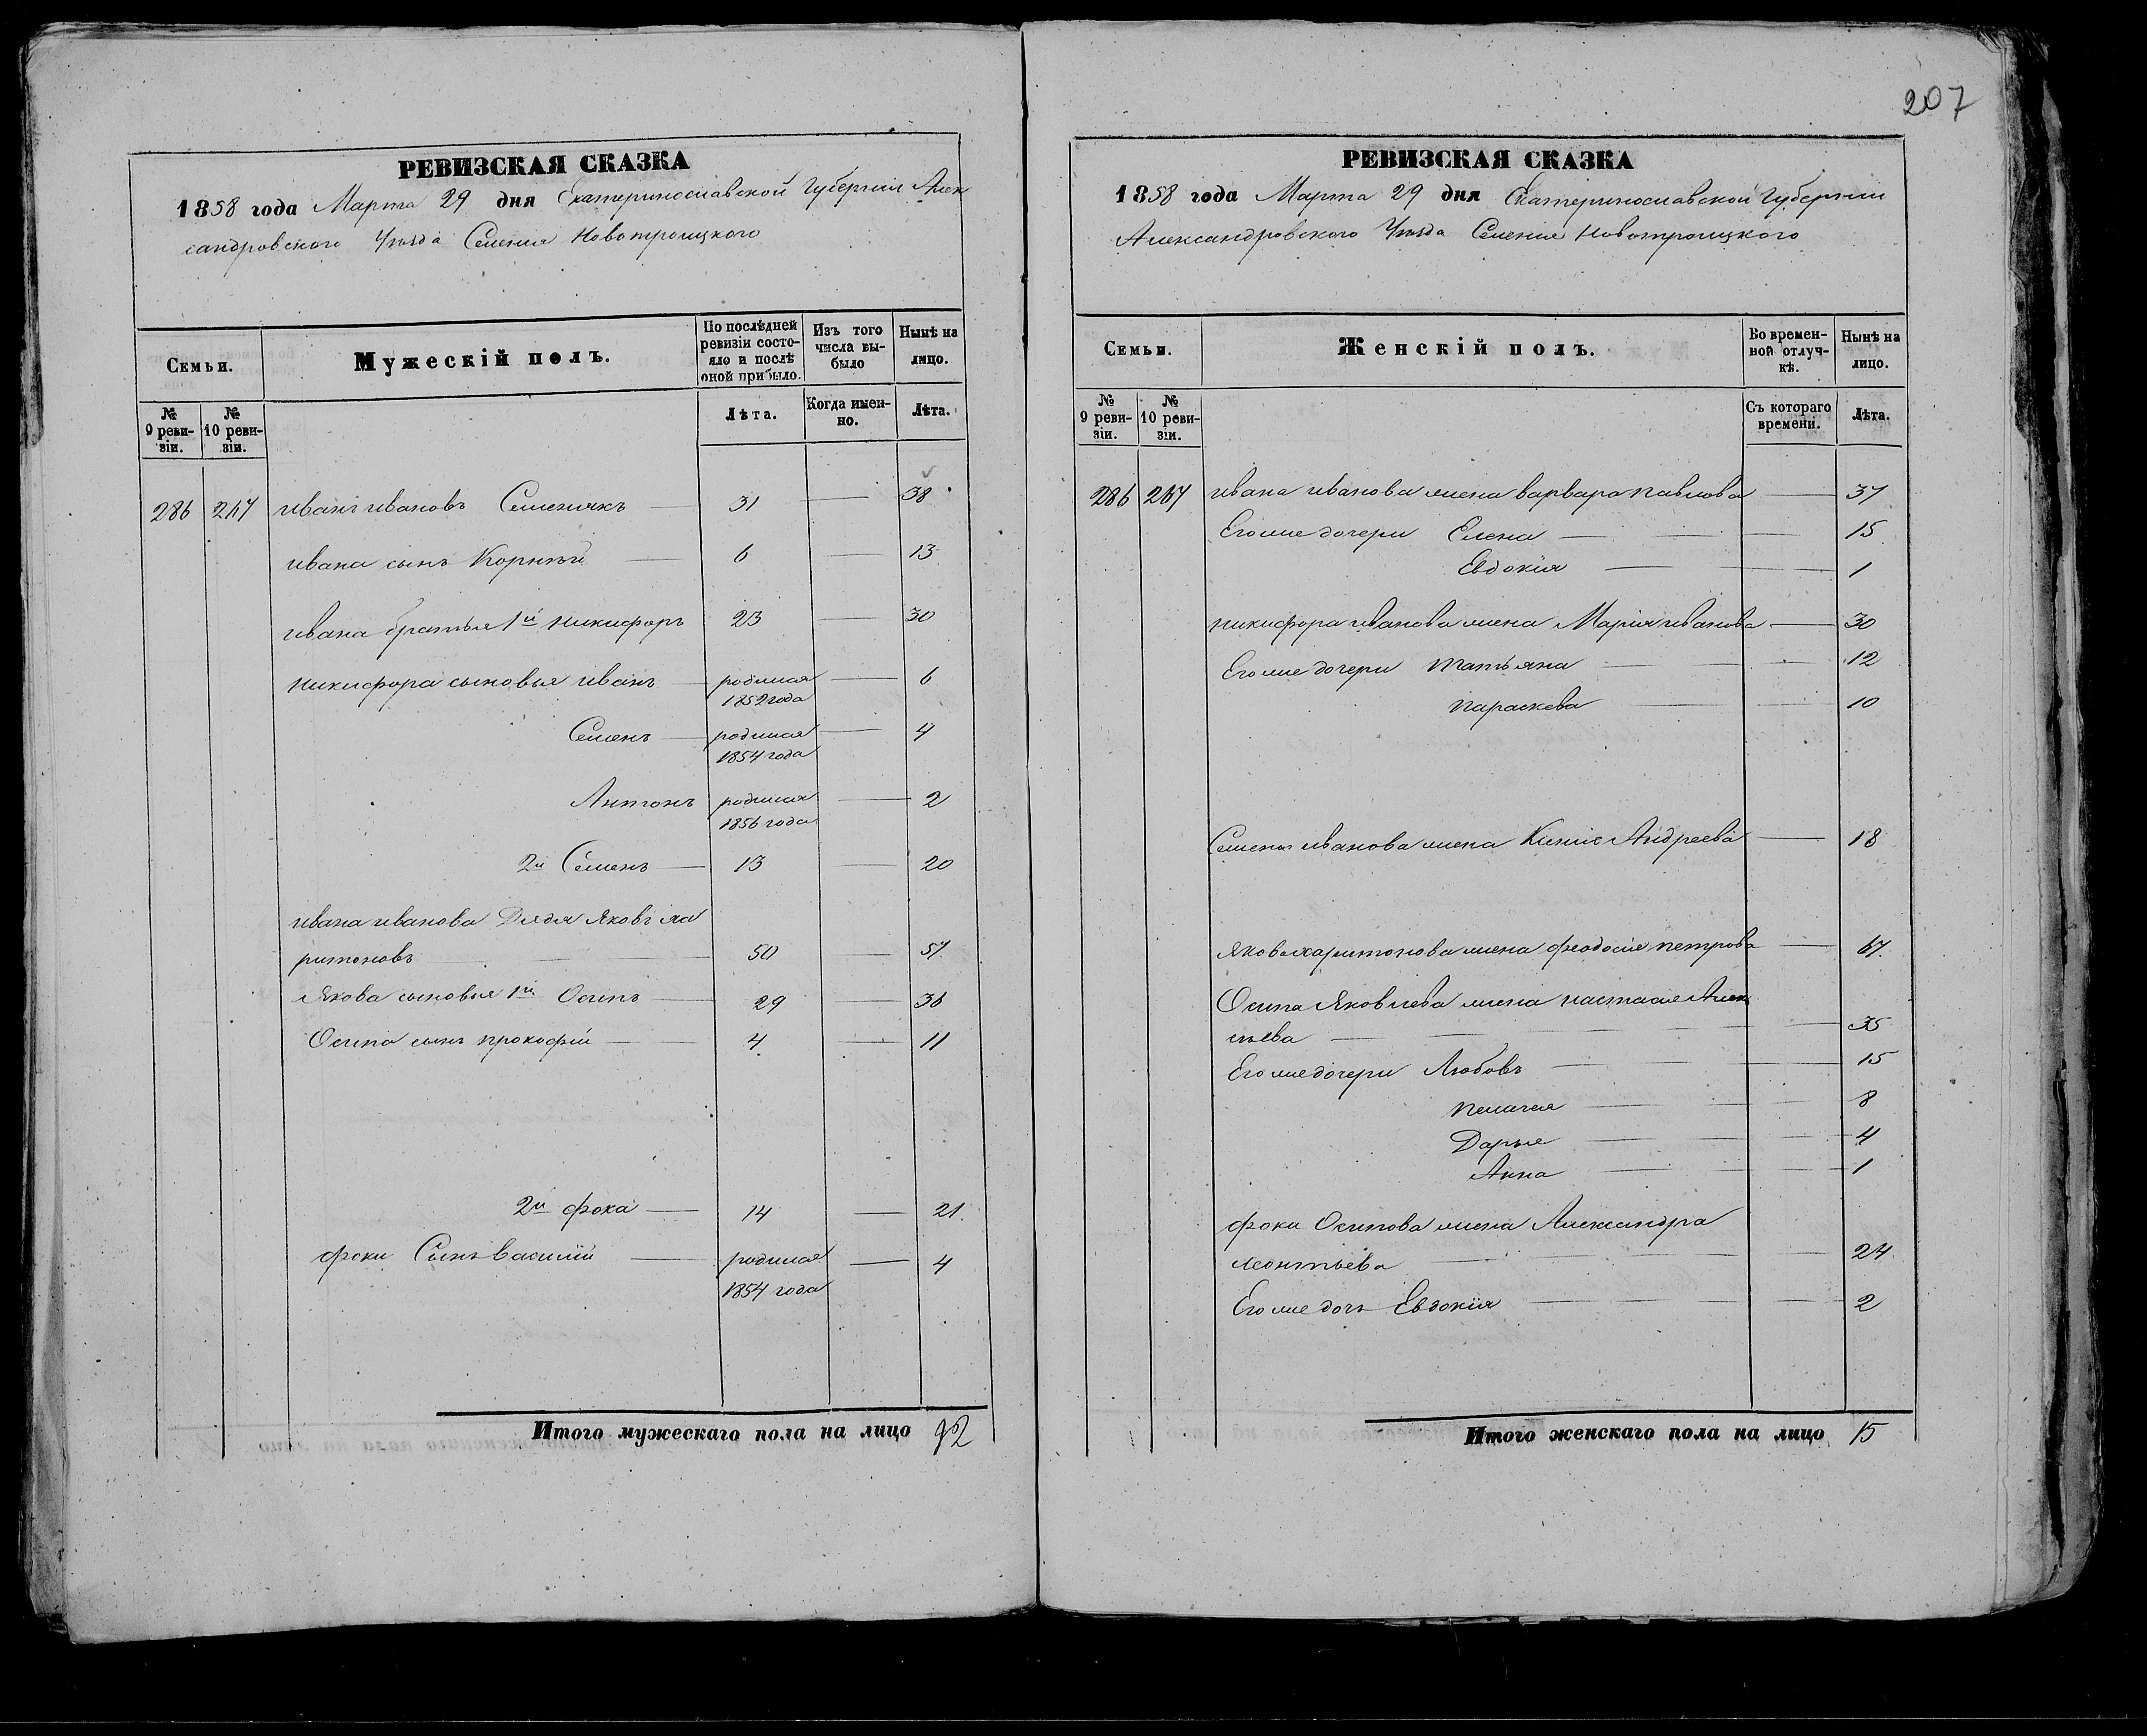 207
РЕВИЗСКАЯ СКАЗКА
1858 года Марта 29 дня Екатеринославской Губернии Алек
сандровского Уѣзда Селения Новотроицкого
Семьи.
Мужескій полъ.
По послѣдней ревизіи состояло и послѣ оной прибыло.
Изъ того числа выбыло
Нынѣ на лицо.
№ 9 ревизіи.
№ 10 ревизіи.
Лѣта.
Когда именно.
Лѣта.
286 267 иванъ ивановъ Семенякъ — 31 — 38
ивана сынъ Корнѣй — 6 — 13
ивана братья 1й никифоръ 23 — 30
никифора сыновья иванъ — родился 1852 года — 6
Семенъ — родился 1854 года — 4
Антонъ родился 1856 года — 2
2й Семенъ — 13 — 20
ивана иванова Дядя Яковъ ха
ритоновъ — 50 — 57
Якова сыновья 1й Осипъ — 29 — 36
Осипа сынъ прокофій — 4 — 11
2й фока — 14 — 21
фоки Сынъ василій — родился 1854 года — 4
Итого мужескаго пола на лицо 12
РЕВИЗСКАЯ СКАЗКА
1858 года Марта 29 дня Екатеринославской Губернии
Александровского Уѣзда Селения Новотроицкого
Семьи.
Женскій полъ.
Во временной отлучкѣ.
Нынѣ на лицо.
№ 9 ревизіи.
№ 10 ревизіи.
Съ котораго времени.
Лѣта.
286 267 ивана иванова жена варвара павлова — 37
Его же дочери Елена — 15
Евдокія — 1
никифора иванова жена Марія иванова — 30
Его же дочери татьяна — 12
параскева — 10
Семена иванова жена Ксенія Андреева — 18
Якова харитонова жена феодосія петрова — 67
Осипа Яковлева жена настасія Алек
сѣева — 35
Его же дочери Любовь — 15
пелагея — 8
Дарья — 4
Анна — 1
фоки Осипова жена Александра
леонтьева — 24
Его же дочь Евдокія — 2
Итого женскаго пола на лицо 15